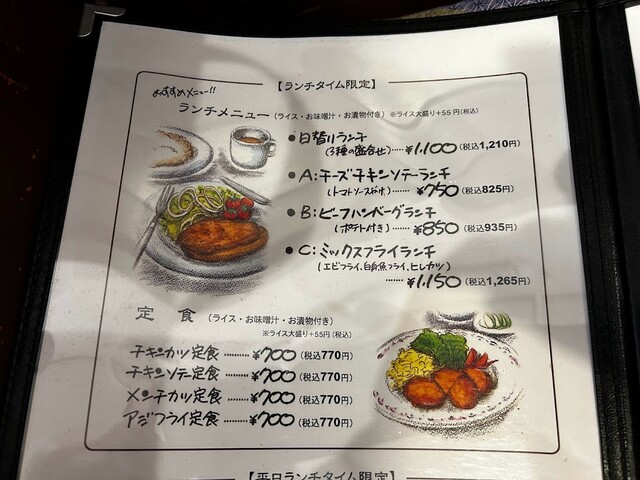 【ランチタイム限定】
おすすめメニュー!!
ランチメニュー（ライス・お味噌汁・お漬物付き）※ライス大盛り+55円(税込)
●日替りランチ
(3種の盛合せ)……¥1,100(税込1,210円)
●A:チーズチキンソテーランチ
(トマトソース添け)……¥750(税込825円)
●B:ビーフハンバーグランチ
(ポテト付き)……¥850(税込935円)
●C:ミックスフライランチ
(エビフライ,白身魚フライ,ヒレカツ)
……¥1,150(税込1,265円)
定食（ライス・お味噌汁・お漬物付き）
※ライス大盛り+55円(税込)
チキンカツ定食………¥700(税込770円)
チキンソテ定食………¥700(税込770円)
メンチカツ定食………¥700(税込770円)
アジフライ定食………¥700(税込770円)
【平日ランチタイム限定】